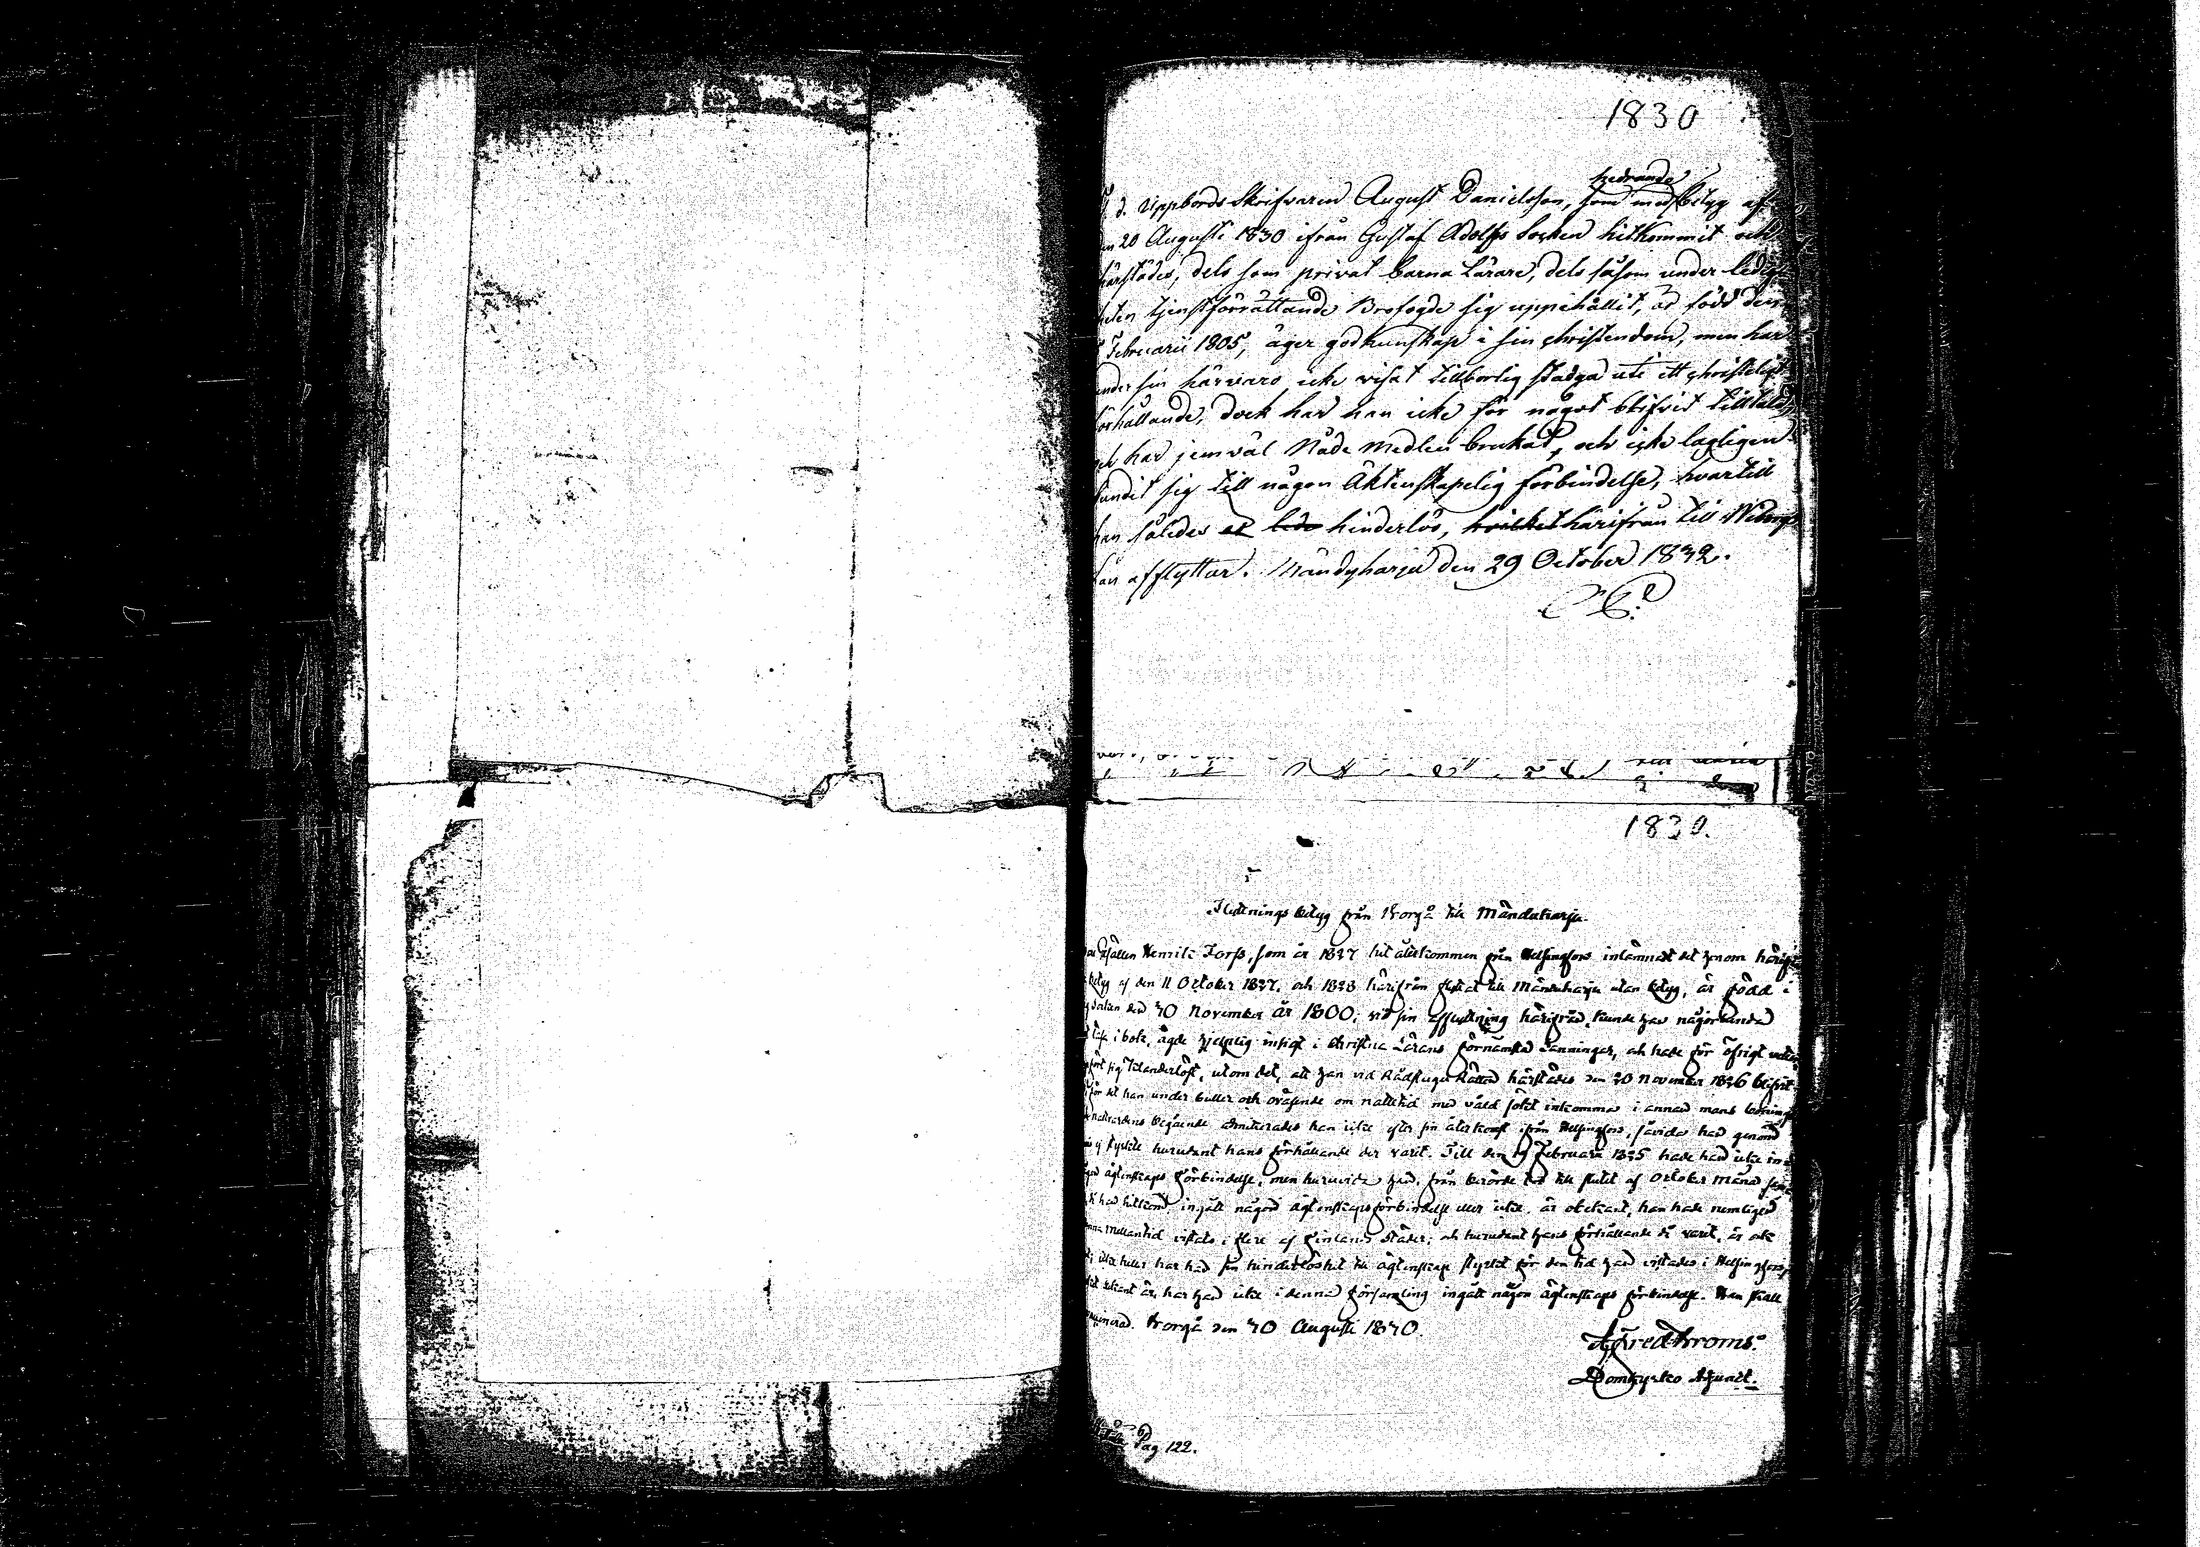 1830
hedrande
d. Uppbords Skrifvaren August Danielsson, som med betyg af
20 Augusti 1830 ifrån Gustaf Adolfs Socken hitkommit och
härstädes, dels som privat barna Lärare, dels såsom under ledig
heten tjenstförrättande Brofogde sig uppehållit, är född den
Februarii 1805, äger god kunskap i sin christendom, men har
under sin härvaro icke visat tillbörlig stadga uti ett christeligt
förhållande, dock har han icke för något blifvit tilltalad,
och har jemväl Nåde Medlen brukat, och icke lagligen
bundit sig till någon Äktenskapelig förbindelse, hvartill
han således är hinderlös, hvilket härifrån till Wiborgs
Län afflyttar. Mändyharju den 29 October 1832.
1830.
Flyttnings betyg från Borgå till Mändäharju.
Gesällen Henrik Forss, som år 1827 hit återkommen från Helsingfors inlämnat det honom härifrån
betyg af den 11 October 1827, och 1828 härifrån flyttat till Mändäharju utan betyg, är född i
den 30 November år 1800; vid sin afflyttning härifrån kunde han någorlunda
läsa i bok, ägde hjelplig insigt i Christna Lärans förnämsta Sanningar, och hade för öfrigt veterligen
fört sig klanderlöst, utom det, att han vid Rådstugu Rätten härstädes den 20 November 1826 blifvit
för det han under buller och oväsende om nattetid med våld sökt inkomma i annan mans boning
Nattvardens begående admitterades han icke efter sin återkomst ifrån Helsingfors, såvida han genom
ej styrkte hurudant hans förhållande der varit. Till den 19 Februarii 1825 hade han icke in
ägtenskaps förbindelse, men huruvida han, från berörde tid till slutet af October månad
han hitkom, ingått någon ägtenskaps förbindelse eller icke, är obekant, han hade nemligen
denna mellantid vistats i flere af Finlands Städer; och hurudant hans förhållande då varit, är ok
icke heller har han sin hinderlöshet till ägtenskap styrkt för den tid han vistades i Helsingfors,
bekant är, har han icke i denna församling ingått någon ägtenskaps förbindelse. Han skall
vaccinerad. Borgå den 30 Augusti 1830.
Domkyrko Adjunct.
Pag 122.